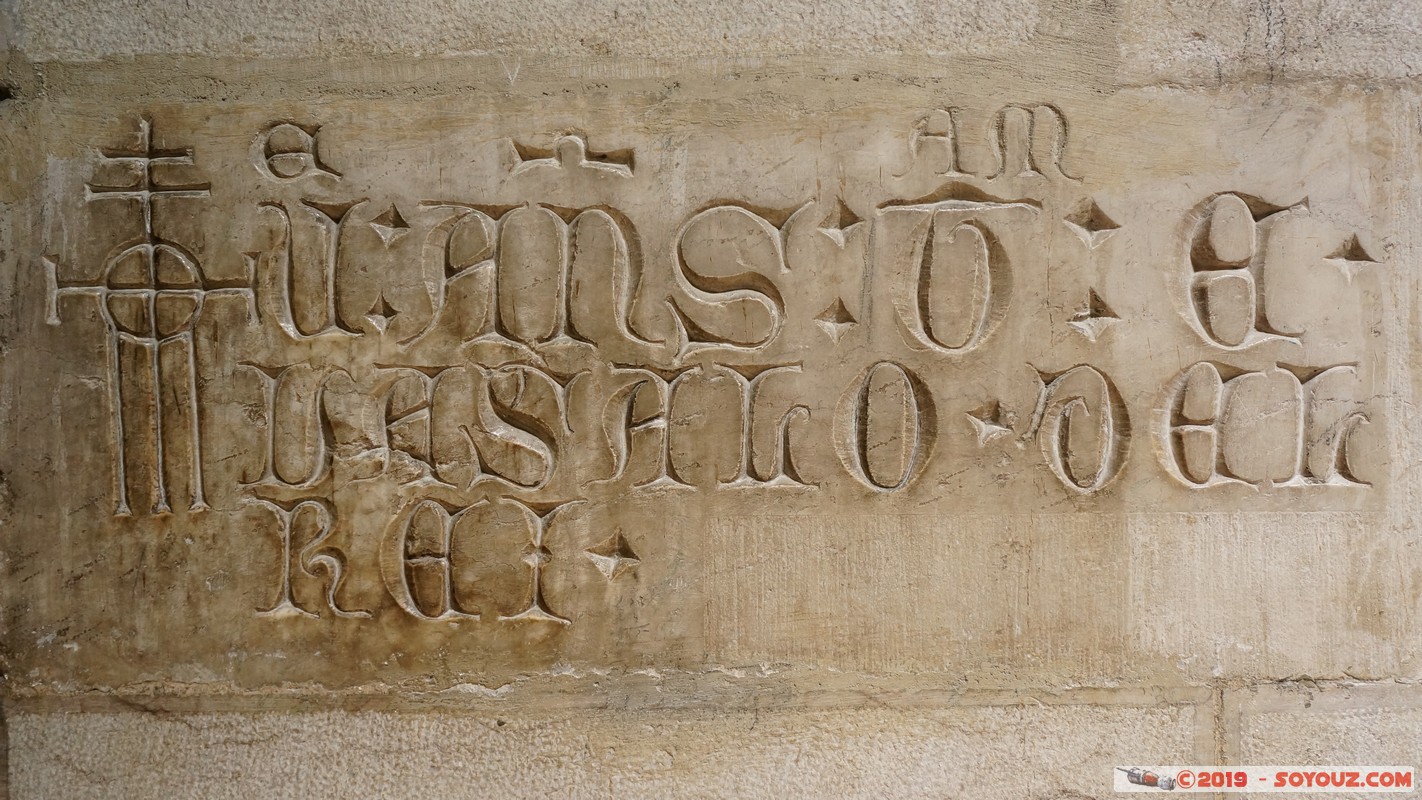 E AM
V : ANS : T : E ·
VASALO · DEL
REI ·
©2019 - SOYOUZ.COM